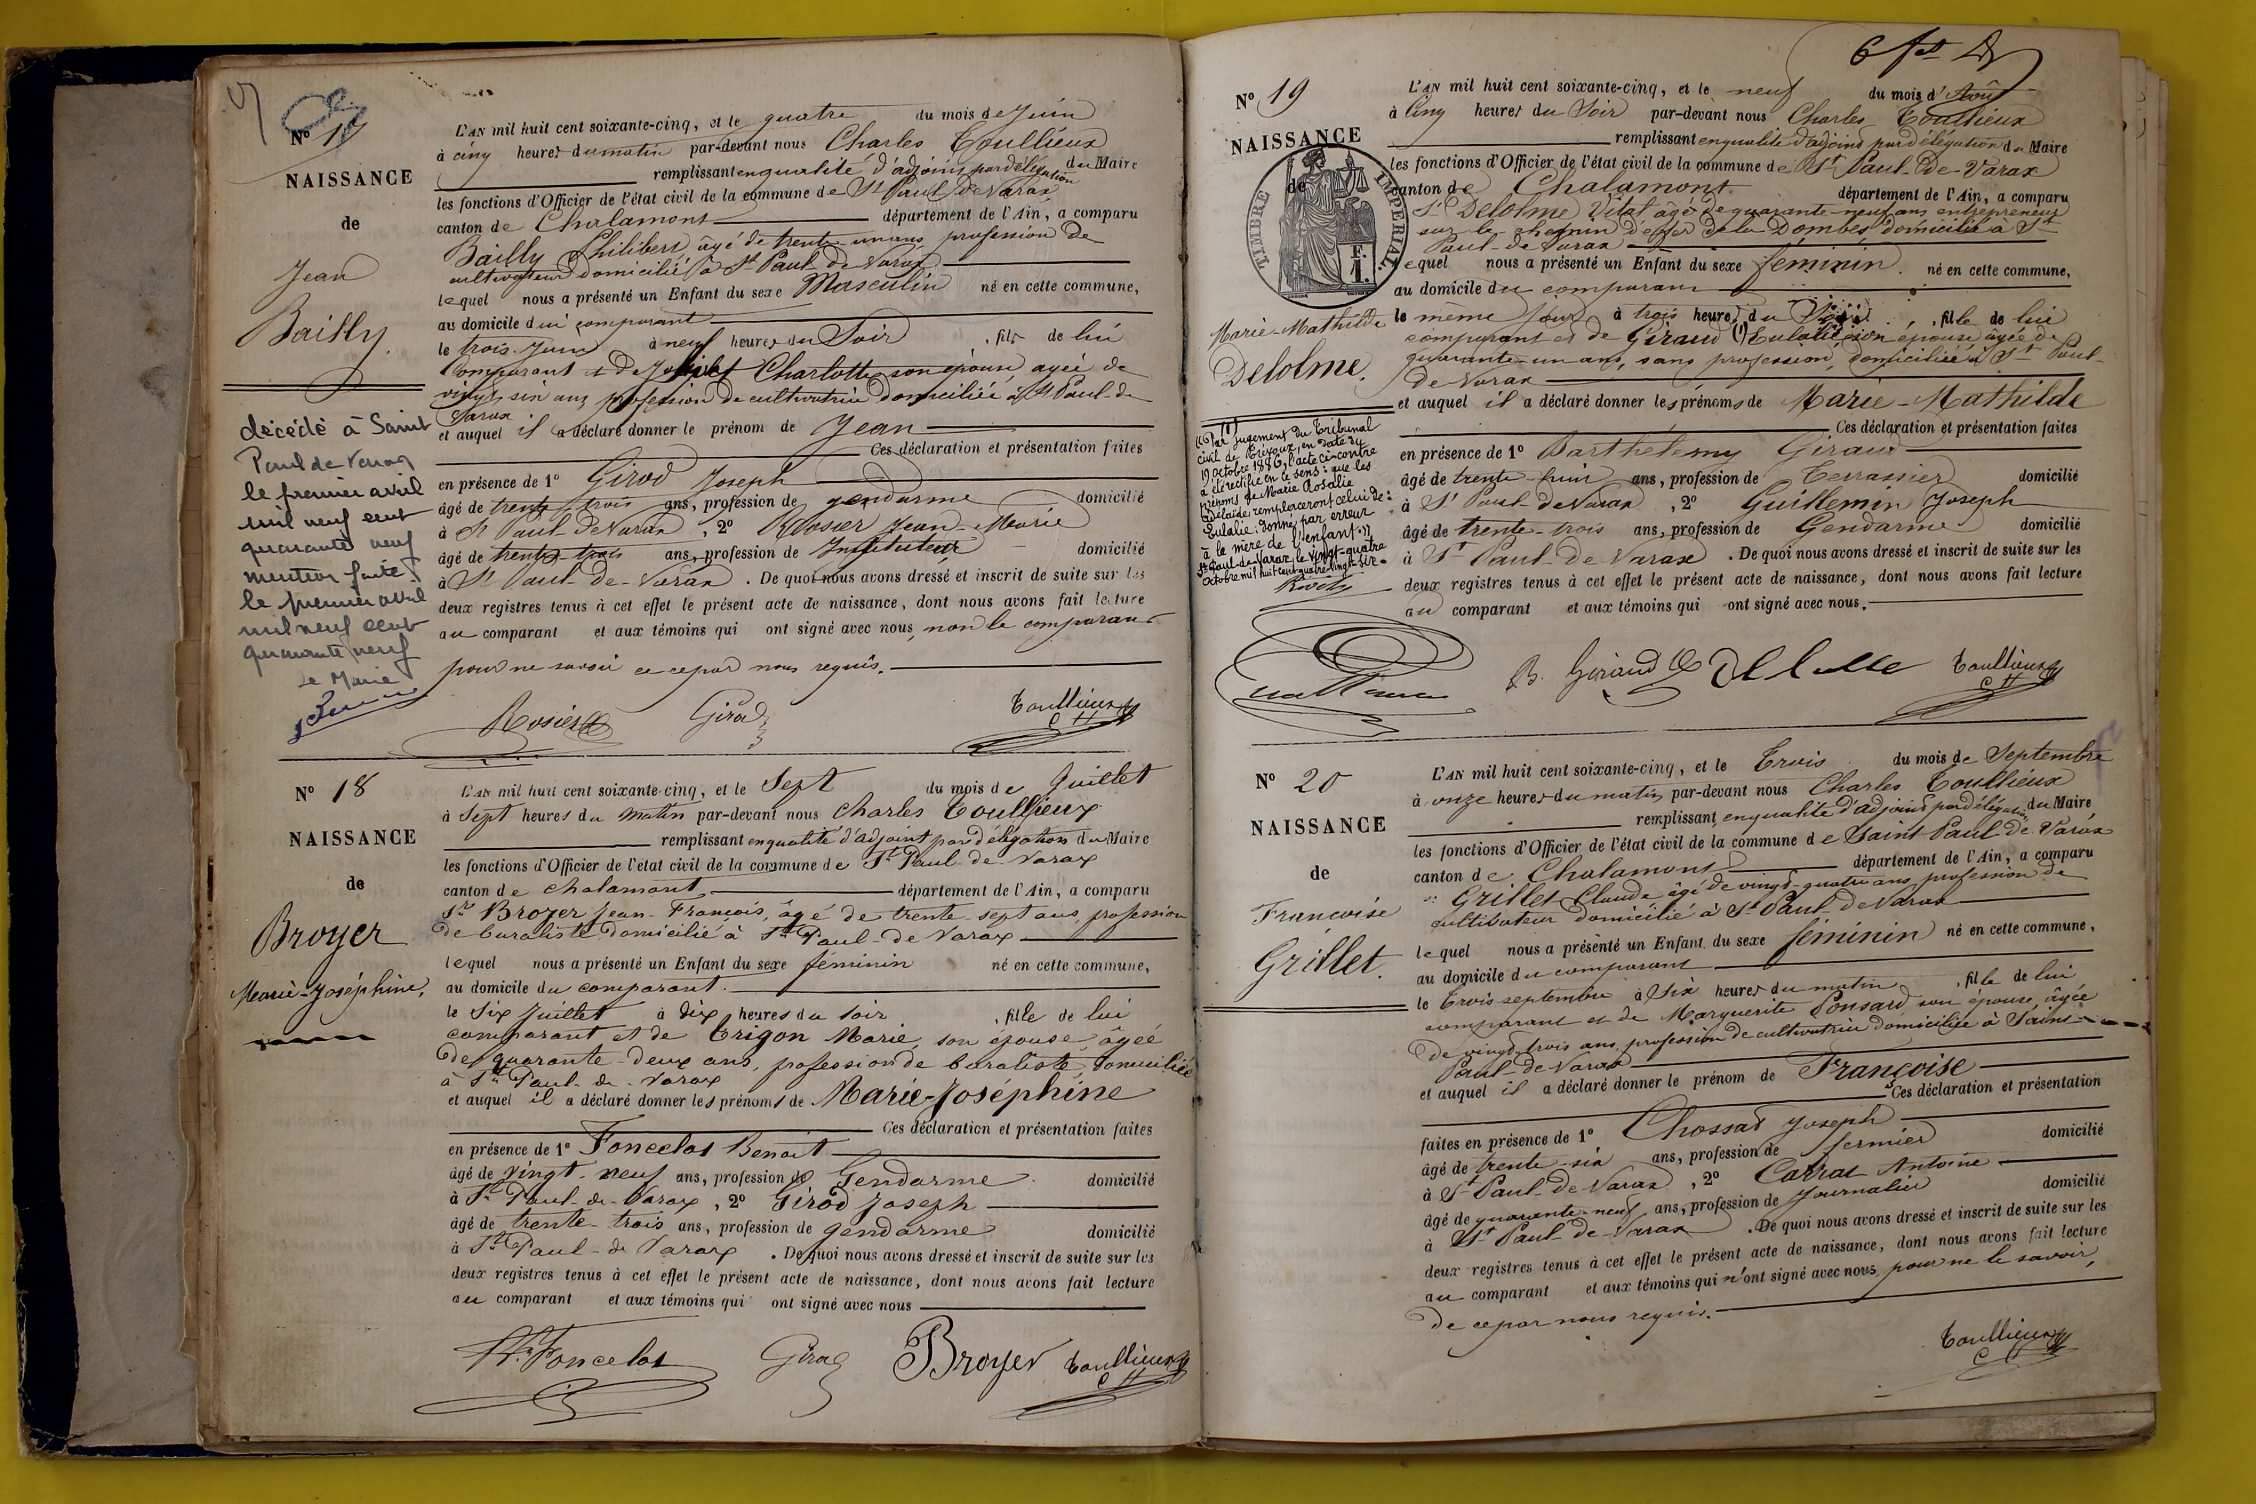 N° 17
NAISSANCE
de
Jean
Bailly
décédé à Saint
Paul de Varax
le premier avril
mil neuf cent
quarante neuf
mention faite
le premier avril
mil neuf cent
quarante neuf
Le Maire
L'AN mil huit cent soixante-cinq, et le quatre du mois de Juin
à cinq heures du matin par-devant nous Charles Toullieux
remplissant en qualité d'adjoint par délégation du Maire
les fonctions d'Officier de l'état civil de la commune de St Paul de Varax
canton de Chalamont département de l'Ain, a comparu
Bailly Philibert âgé de trente un ans profession de
cultivateur domicilié à St Paul-de-Varax
lequel nous a présenté un Enfant du sexe Masculin né en cette commune,
au domicile dui comparant
le trois Juin à neuf heures du Soir , fils de lui
comparant et de Charlotte son épouse agée de
vingt six ans profession de cultivatrice domiciliée à St Paul de
Varax
et auquel il a déclaré donner le prénom de Jean
Ces déclaration et présentation faites
en présence de 1° Girod Joseph
âgé de trente trois ans, profession de gendarme domicilié
à St Paul-de Varax , 2° Rosier Jean-Marie
âgé de trente-trois ans, profession de Instituteur domicilié
à St Paul-de-Varax . De quoi nous avons dressé et inscrit de suite sur les
deux registres tenus à cet effet le présent acte de naissance, dont nous avons fait lecture
au comparant et aux témoins qui ont signé avec nous, non le comparant
pour ne savoir ce ce par nous requis.
Rosier Girod Toullieux
C H
N° 18
NAISSANCE
de
Broyer
Marie-Joséphine.
L'AN mil huit cent soixante-cinq, et le Sept du mois de Juillet
à Sept heures du Matin par-devant nous Charles Toullieux
remplissant en qualité d'adjoint par délégation du Maire
les fonctions d'Officier de l'état civil de la commune de St Paul-de-Varax
canton de Chalamont département de l'Ain, a comparu
Sr Broyer Jean-François, âgé de trente-sept ans, profession
de buraliste domicilié à St Paul-de Varax
lequel nous a présenté un Enfant du sexe féminin né en cette commune,
au domicile du comparant.
le Six Juillet à dix heures du soir , fille de lui
comparant et de Trigon Marie, son épouse, âgée
de quarante-deux ans, profession de buraliste domiciliée
à St Paul-de-Varax
et auquel il a déclaré donner les prénoms de Marie-Joséphine
Ces déclaration et présentation faites
en présence de 1° Foncelas Benoît
âgé de Vingt-neuf ans, profession de Gendarme domicilié
à St Paul-de-Varax , 2° Girod Joseph
âgé de trente-trois ans, profession de gendarme domicilié
à St Paul-de Varax . De quoi nous avons dressé et inscrit de suite sur les
deux registres tenus à cet effet le présent acte de naissance, dont nous avons fait lecture
au comparant et aux témoins qui ont signé avec nous
Foncelas Girod Broyer Toullieux
C H
N° 19
NAISSANCE
de
TIMBRE IMPÉRIAL
F.
1.
Marie-Mathilde
Delolme.
(1) "Par jugement du Tribunal
civil de Trévoux, en date du
19 octobre 1886, l'acte ci-contre
a été rectifié en ce sens: que les
prénoms de Marie Rosalie
Adélaïde, remplaceront celui de:
Eulalie: donné par erreur
à la mère de l'enfant."
St Paul-de-Varax, le vingt-quatre
octobre mil huit cent quatre-vingt-six.
L'AN mil huit cent soixante-cinq, et le neuf du mois d'Août
à Cinq heures du Soir par-devant nous Charles Toullieux
remplissant en qualité d'adjoint par délégation du Maire
les fonctions d'Officier de l'état civil de la commune de St Paul-de-Varax
canton de Chalamont département de l'Ain, a comparu
Sr Delolme Vital âgé de quarante-neuf ans entrepreneur
sur le chemin de fer de la Dombes domicilié à St
Paul-de Varax
lequel nous a présenté un Enfant du sexe féminin né en cette commune,
au domicile du comparant
le même jour à trois heures du , fille de lui
comparant et de Giraud (1) Eulalie son épouse âgée de
quarante-un ans, sans profession, domiciliée à St Paul-
de Varax
et auquel il a déclaré donner les prénoms de Marie-Mathilde
Ces déclaration et présentation faites
en présence de 1° Barthélemy Giraud
âgé de trente-huit ans, profession de Terrassier domicilié
à St Paul-de Varax , 2° Guillemin Joseph
âgé de trente-trois ans, profession de Gendarme domicilié
à St Paul-de Varax . De quoi nous avons dressé et inscrit de suite sur les
deux registres tenus à cet effet le présent acte de naissance, dont nous avons fait lecture
au comparant et aux témoins qui ont signé avec nous.
B. Giraud Toullieux
C H
N° 20
NAISSANCE
de
Françoise
Grillet.
L'AN mil huit cent soixante-cinq, et le Trois du mois de Septembre
à onze heures du matin par-devant nous Charles Toullieux
remplissant en qualité d'adjoint par délégation du Maire
les fonctions d'Officier de l'état civil de la commune de Saint Paul-de-Varax
canton de Chalamont département de l'Ain, a comparu
Sr Grillet Claude âgé de vingt-quatre ans profession de
cultivateur domicilié à St Paul-de Varax
lequel nous a présenté un Enfant du sexe féminin né en cette commune,
au domicile du comparant
le Trois septembre à Six heures du matin , fille de lui
comparant et de Marguerite Ponsard, son épouse, âgée
de vingt-trois ans, profession de cultivatrice domiciliée à Saint
Paul-de Varax
et auquel il a déclaré donner le prénom de Françoise
Ces déclaration et présentation
faites en présence de 1° Chossat Joseph
âgé de trente-six ans, profession de fermier domicilié
à St Paul-de Varax , 2° Carrat Antoine
âgé de quarante-neuf ans, profession de Journalier domicilié
à St Paul-de-Varax . De quoi nous avons dressé et inscrit de suite sur les
deux registres tenus à cet effet le présent acte de naissance, dont nous avons fait lecture
au comparant et aux témoins qui n'ont signé avec nous pour ne le savoir,
de ce par nous requis.
Toullieux
C H